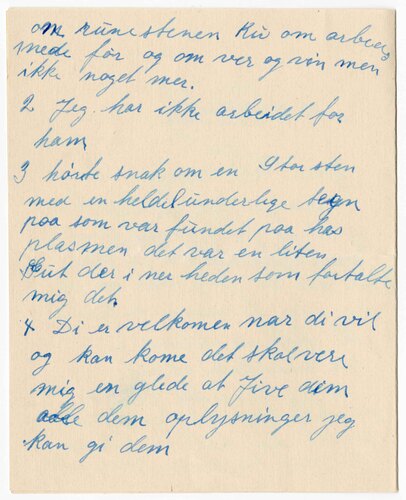 om runestenen Ku om arbeid
mede før og om ver og vin men
ikke noget mer.
2 Jeg. har ikke arbeidet for
ham
3 hørte snak om en Stor sten
med en heldel underlige tegn
paa som var fundet paa has
plasmen det var en liten
Gut der i ner heden som fortalte
mig det.
4 Di er velkomen nar di vil
og kan kome det skal vere
mig en glede at Jive dem
alle dem oplysninger jeg
kan gi dem